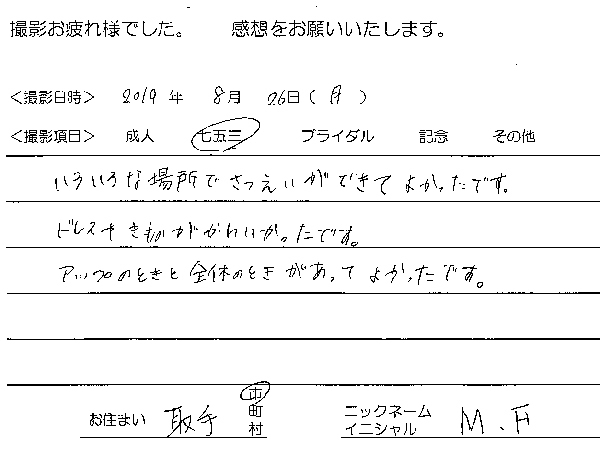 撮影お疲れ様でした。 感想をお願いいたします。
＜撮影日時＞ 2019 年 8月 26日（月）
＜撮影項目＞ 成人 七五三 ブライダル 記念 その他
いろいろな場所でさつえいができてよかったです。
ドレスやきものがかわいかったです。
アップのときと全体のときがあってよかったです。
お住まい 取手 市町村 ニックネームイニシャル M.F